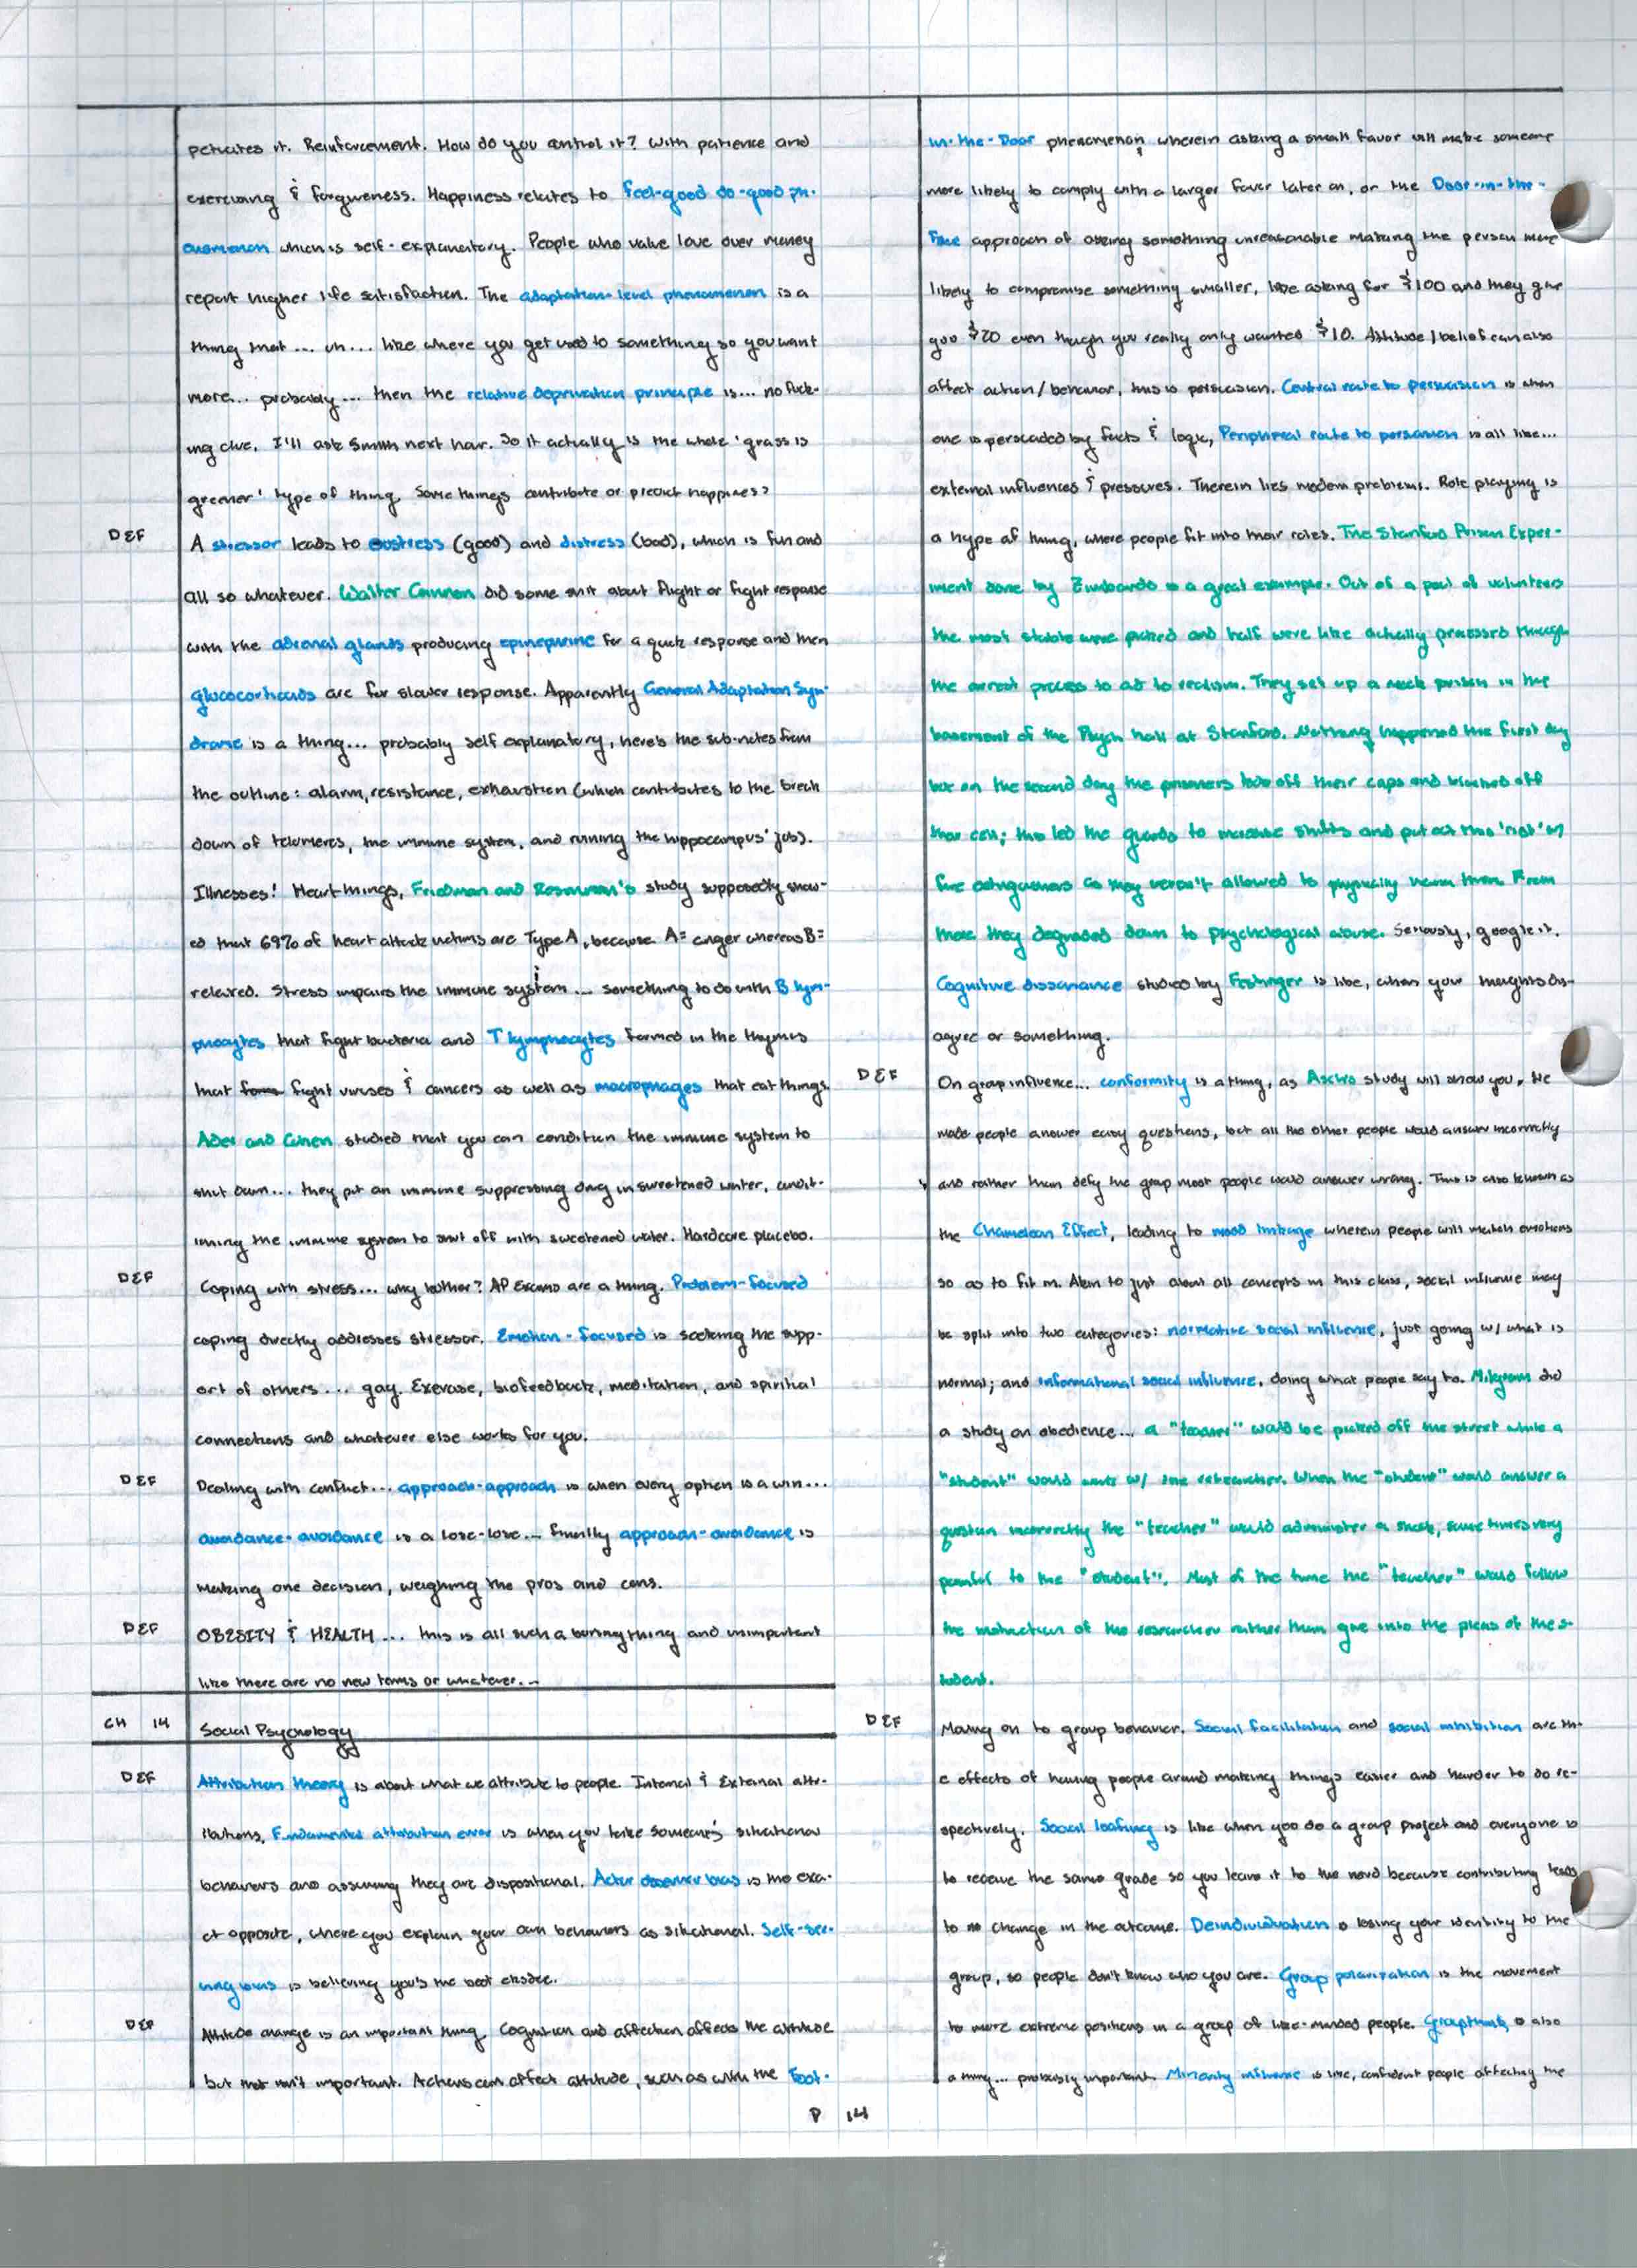 petuates it. Reinforcement. How do you control it? With patience and
exercising & forgiveness. Happiness relates to feel-good do-good ph-
enomenon which is self-explanatory. People who value love over money
report higher life satisfaction. The adaptation-level phenomenon is a
thing that... uh... like where you get used to something so you want
more... probably... then the relative deprivation principle is... no fuck-
ing clue, I'll ask Smith next hour. So it actually is the whole 'grass is
greener' type of thing. Some things contribute or predict happiness?
DEF A stressor leads to eustress (good) and distress (bad), which is fun and
all so whatever. Walter Cannon did some shit about flight or fight response
with the adrenal glands producing epinephrine for a quick response and then
glucocorticoids are for slower response. Apparently General Adaptation Syn-
drome is a thing... probably self explanatory, here's the sub-notes from
the outline: alarm, resistance, exhaustion (which contributes to the break
down of telomeres, the immune system, and ruining the hippocampus' job).
Illnesses! Heart things, Friedman and Rosenman's study supposedly show-
ed that 69% of heart attack victims are Type A, because A= anger whereas B=
relaxed. Stress impairs the immune system... something to do with B lym-
phocytes that fight bacteria and T lymphocytes formed in the thymus
that fight viruses & cancers as well as macrophages that eat things.
Ader and Cohen studied that you can condition the immune system to
shut down... they put an immune suppressing drug in sweetened water, condit-
ioning the immune system to shut off with sweetened water. Hardcore placebo.
DEF Coping with stress... why bother? AP Exams are a thing. Problem-focused
coping directly addresses stressor. Emotion-focused is seeking the supp-
ort of others... gay. Exercise, biofeedback, meditation, and spiritual
connections and whatever else works for you.
DEF Dealing with conflict... approach-approach is when every option is a win...
avoidance-avoidance is a lose-lose... finally approach-avoidance is
making one decision, weighing the pros and cons.
DEF OBESITY & HEALTH... this is all such a boring thing and unimportant
like there are no new terms or whatever...
CH 14 Social Psychology
DEF Attribution theory is about what we attribute to people. Internal & External attr-
ibutions, Fundamental attribution error is when you take someone's situational
behaviors and assuming they are dispositional. Actor observer bias is the exa-
ct opposite, where you explain your own behaviors as situational. Self-ser-
ving bias is believing you's the best
DEF Attitude change is an important thing. Cognition and affection affects the attitude
but that isn't important. Actions can affect attitude, such as with the Foot-
in-the-Door phenomenon, wherein asking a small favor will make someone
more likely to comply with a larger favor later on, or the Door-in-the-
Face approach of asking something unreasonable making the person more
likely to compromise something smaller, like asking for $100 and they give
you $20 even though you really only wanted $10. Attitude/belief can also
affect action/behavior, this is persuasion. Central route to persuasion is when
one is persuaded by facts & logic, Peripheral route to persuasion is all like...
external influences & pressures. Therein lies modern problems. Role playing is
a hype af thing, where people fit into their roles. The Stanford Prison Exper-
iment done by Zimbardo is a great example. Out of a pool of volunteers
the most stable were picked and half were like actually processed through
the arrest process to ad to realism. They set up a mock prison in the
basement of the Psych hall at Stanford. Nothing happened the first day
but on the second day the prisoners took off their caps and blocked off
their cell; this led the guards to increase shifts and put out this 'riot' w/
fire extinguishers as they weren't allowed to physically harm them. From
there they degraded down to psychological abuse. Seriously, google it.
Cognitive dissonance studied by Festinger is like, when your thoughts dis-
agree or something.
DEF On group influence... conformity is a thing, as Asch's study will show you. He
made people answer easy questions, but all the other people would answer incorrectly
and rather than defy the group most people would answer wrong. This is also known as
the Chameleon Effect, leading to mood linkage wherein people will match emotions
so as to fit in. Akin to just about all concepts in this class, social influence may
be split into two categories: normative social influence, just going w/ what is
normal; and informational social influence, doing what people say to. Milgram did
a study on obedience... a "teacher" would be picked off the street while a
"student" would work w/ the researcher. When the "student" would answer a
question incorrectly the "teacher" would administer a shock, sometimes very
painful to the "student". Most of the time the "teacher" would follow
the instruction of the researcher rather than give into the pleas of the s-
tudent.
DEF Moving on to group behavior. Social facilitation and social inhibition are th-
e effects of having people around making things easier and harder to do re-
spectively. Social loafing is like when you do a group project and everyone is
to receive the same grade so you leave it to the nerd because contributing leads
to no change in the outcome. Deindividuation is losing your identity to the
group, so people don't know who you are. Group polarization is the movement
to more extreme positions in a group of like-minded people. Groupthink is also
a thing... probably important. Minority influence is like, confident people affecting the
P 14